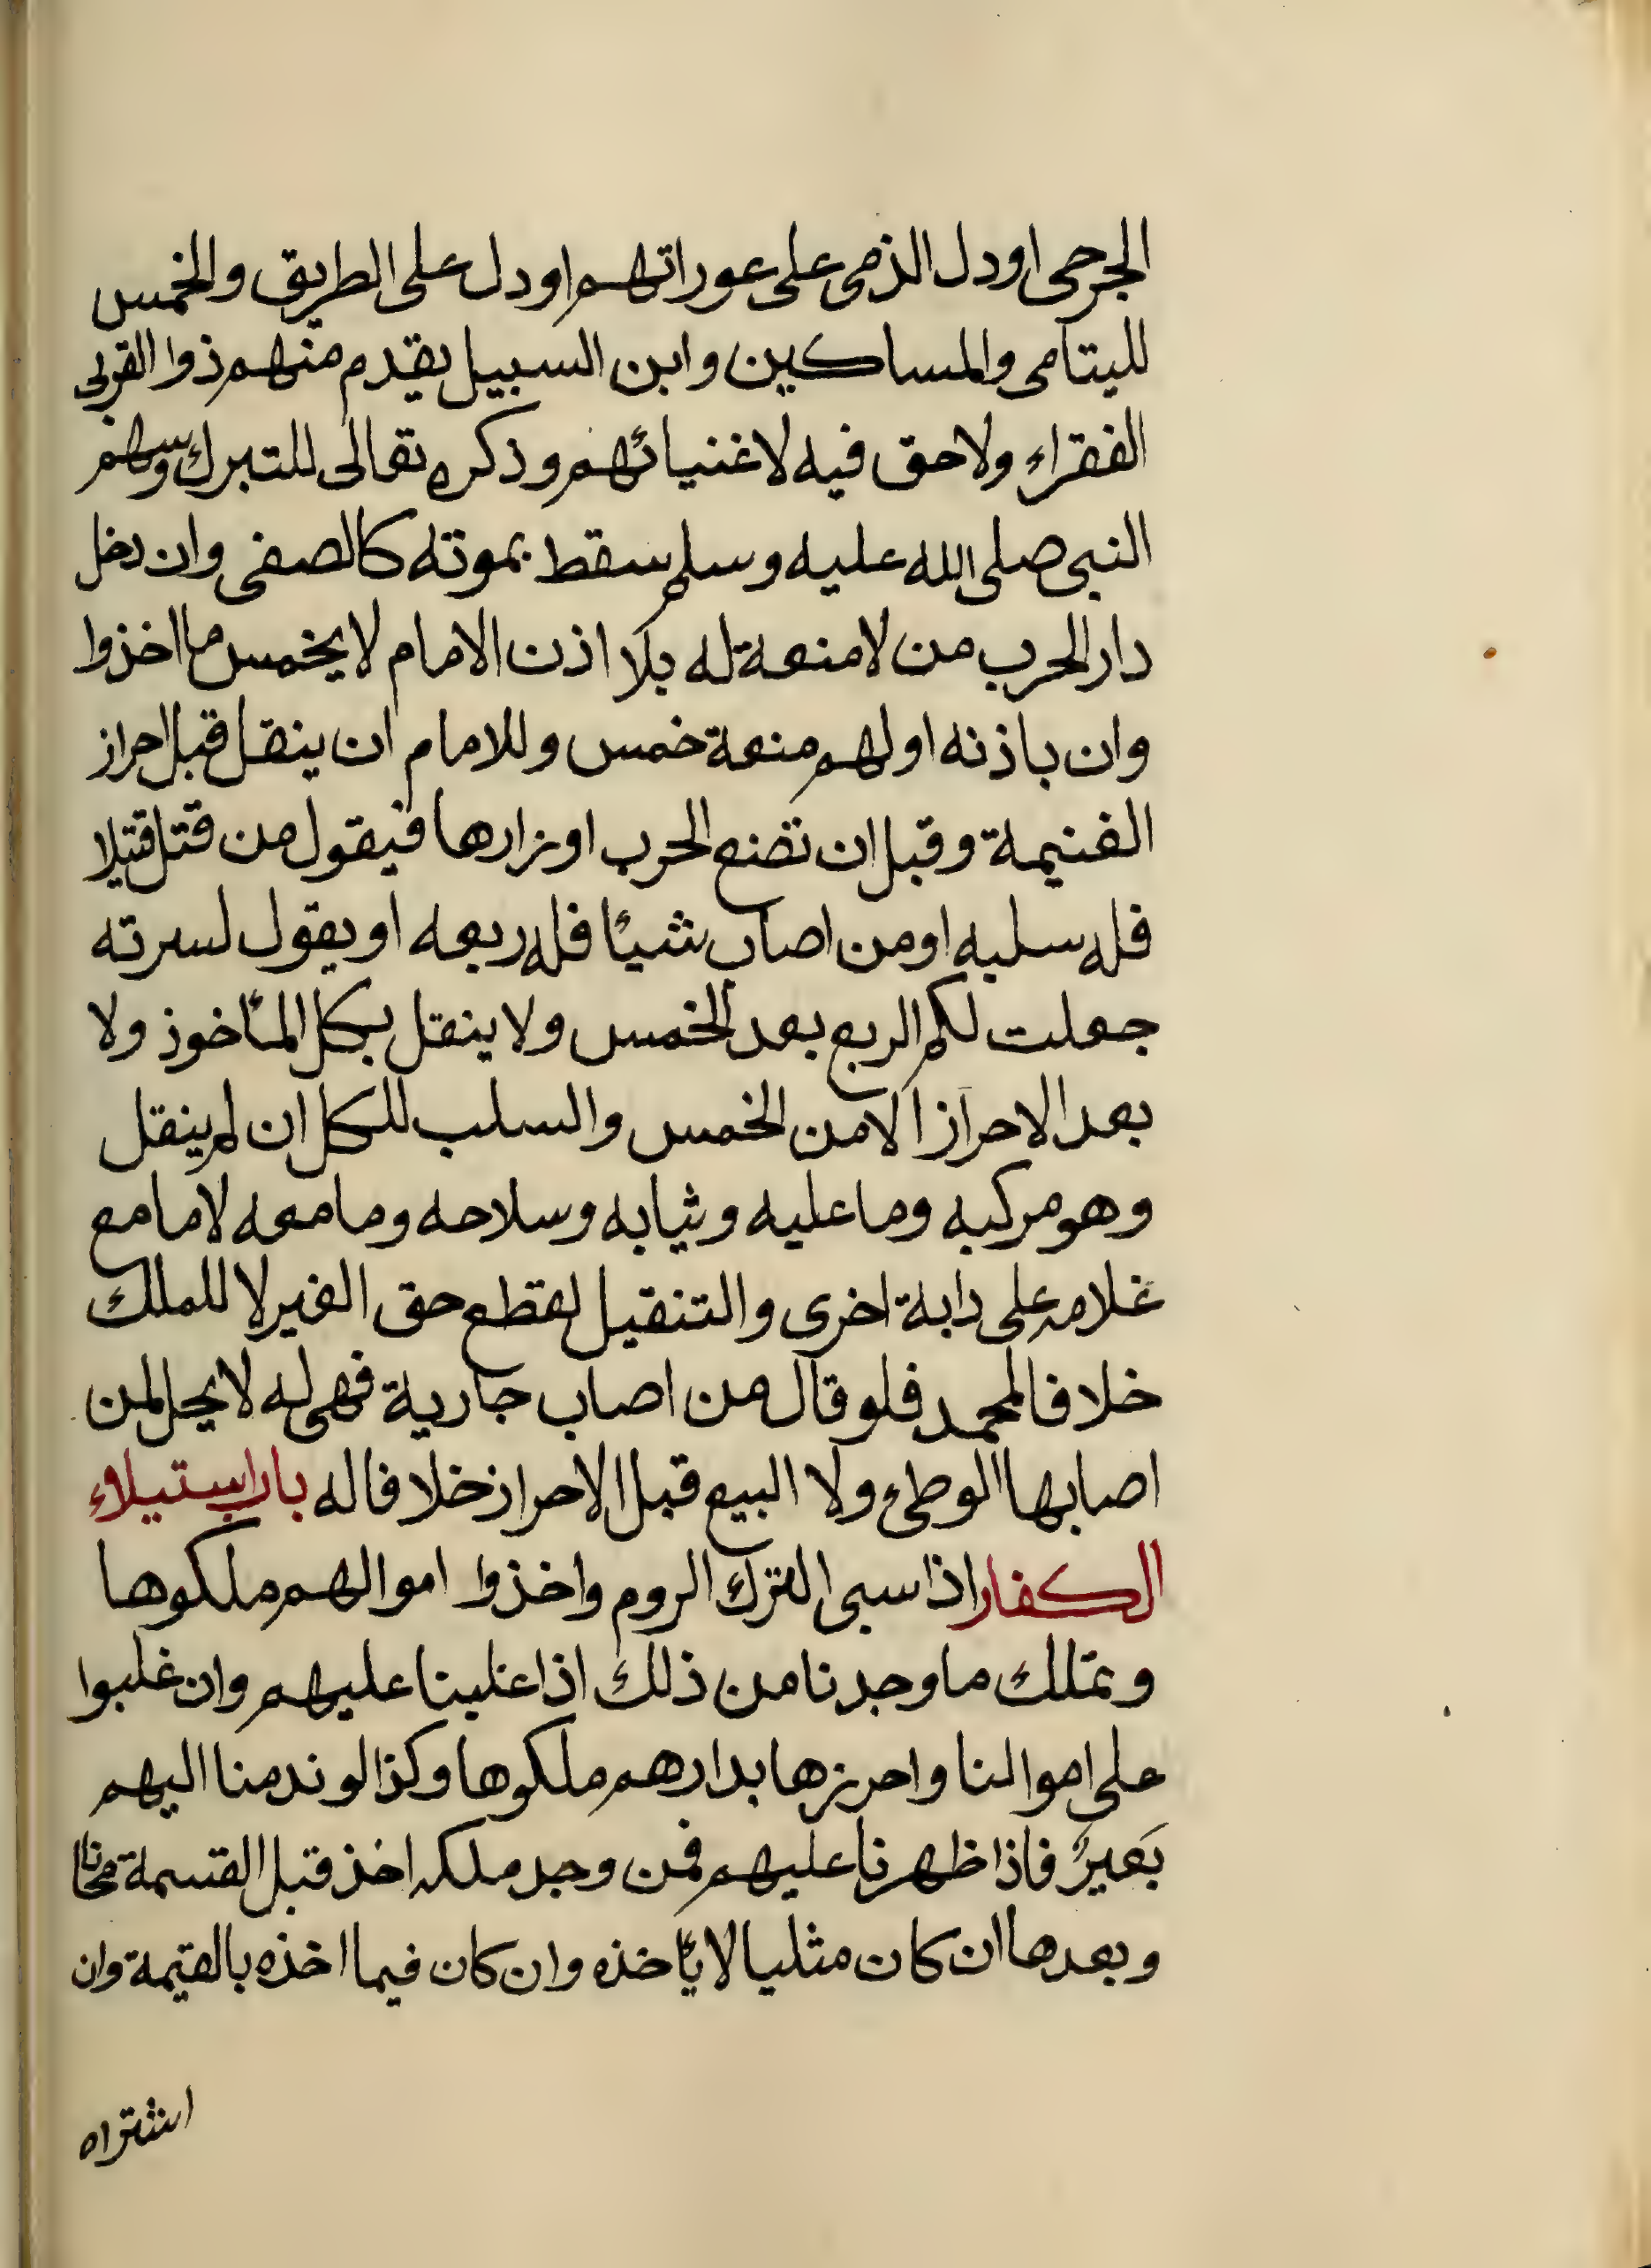 الجرحى اودل الذمى على عوراتهم اودل على الطريق والخمس
لليتامى والمساكين وابن السبيل يقدم منهم ذوا القربى
الفقراء ولاحق فيه لاغنيائهم وذكره تعالى للتبرك وسهم
النبى صلى الله عليه وسلم سقط بموته كالصفى وان دخل
دار الحرب من لامنعة له بلا اذن الامام لا يخمس ما اخذوا
وان باذنه اولهم منعة خمس وللامام ان ينفل قبل احراز
الغنيمة وقبل ان تضع الحرب اوزارها فيقول من قتل قتيلا
فله سلبه اومن اصاب شيئا فله ربعه او يقول لسرته
جعلت لكم الربع بعد الخمس ولا ينفل بكل المأخوذ ولا
بعد الاحراز الامن الخمس والسلب للكل ان لم ينفل
وهو مركبه وما عليه وثيابه وسلاحه وما معه لاما مع
غلامه على دابة اخرى والتنفيل لقطع حق الغير لا للملك
خلافا لمحمد فلو قال من اصاب جارية فهى له لا يحل لمن
اصابها الوطئ ولا البيع قبل الاحراز خلافا له باب استيلاء
الكفار اذا سبى الترك الروم واخذوا اموالهم ملكوها
ونملك ما وجدنا من ذلك اذا غلبنا عليهم وان غلبوا
على اموالنا واحرزها بدارهم ملكوها وكذا لو ند منا اليهم
بَعيرٌ فاذا ظهرنا عليهم فمن وجد ملكه اخذ قبل القسمة مجانا
وبعدها ان كان مثليا لا يأخذه وان كان فيما اخذه بالقيمة وان
اشتراه